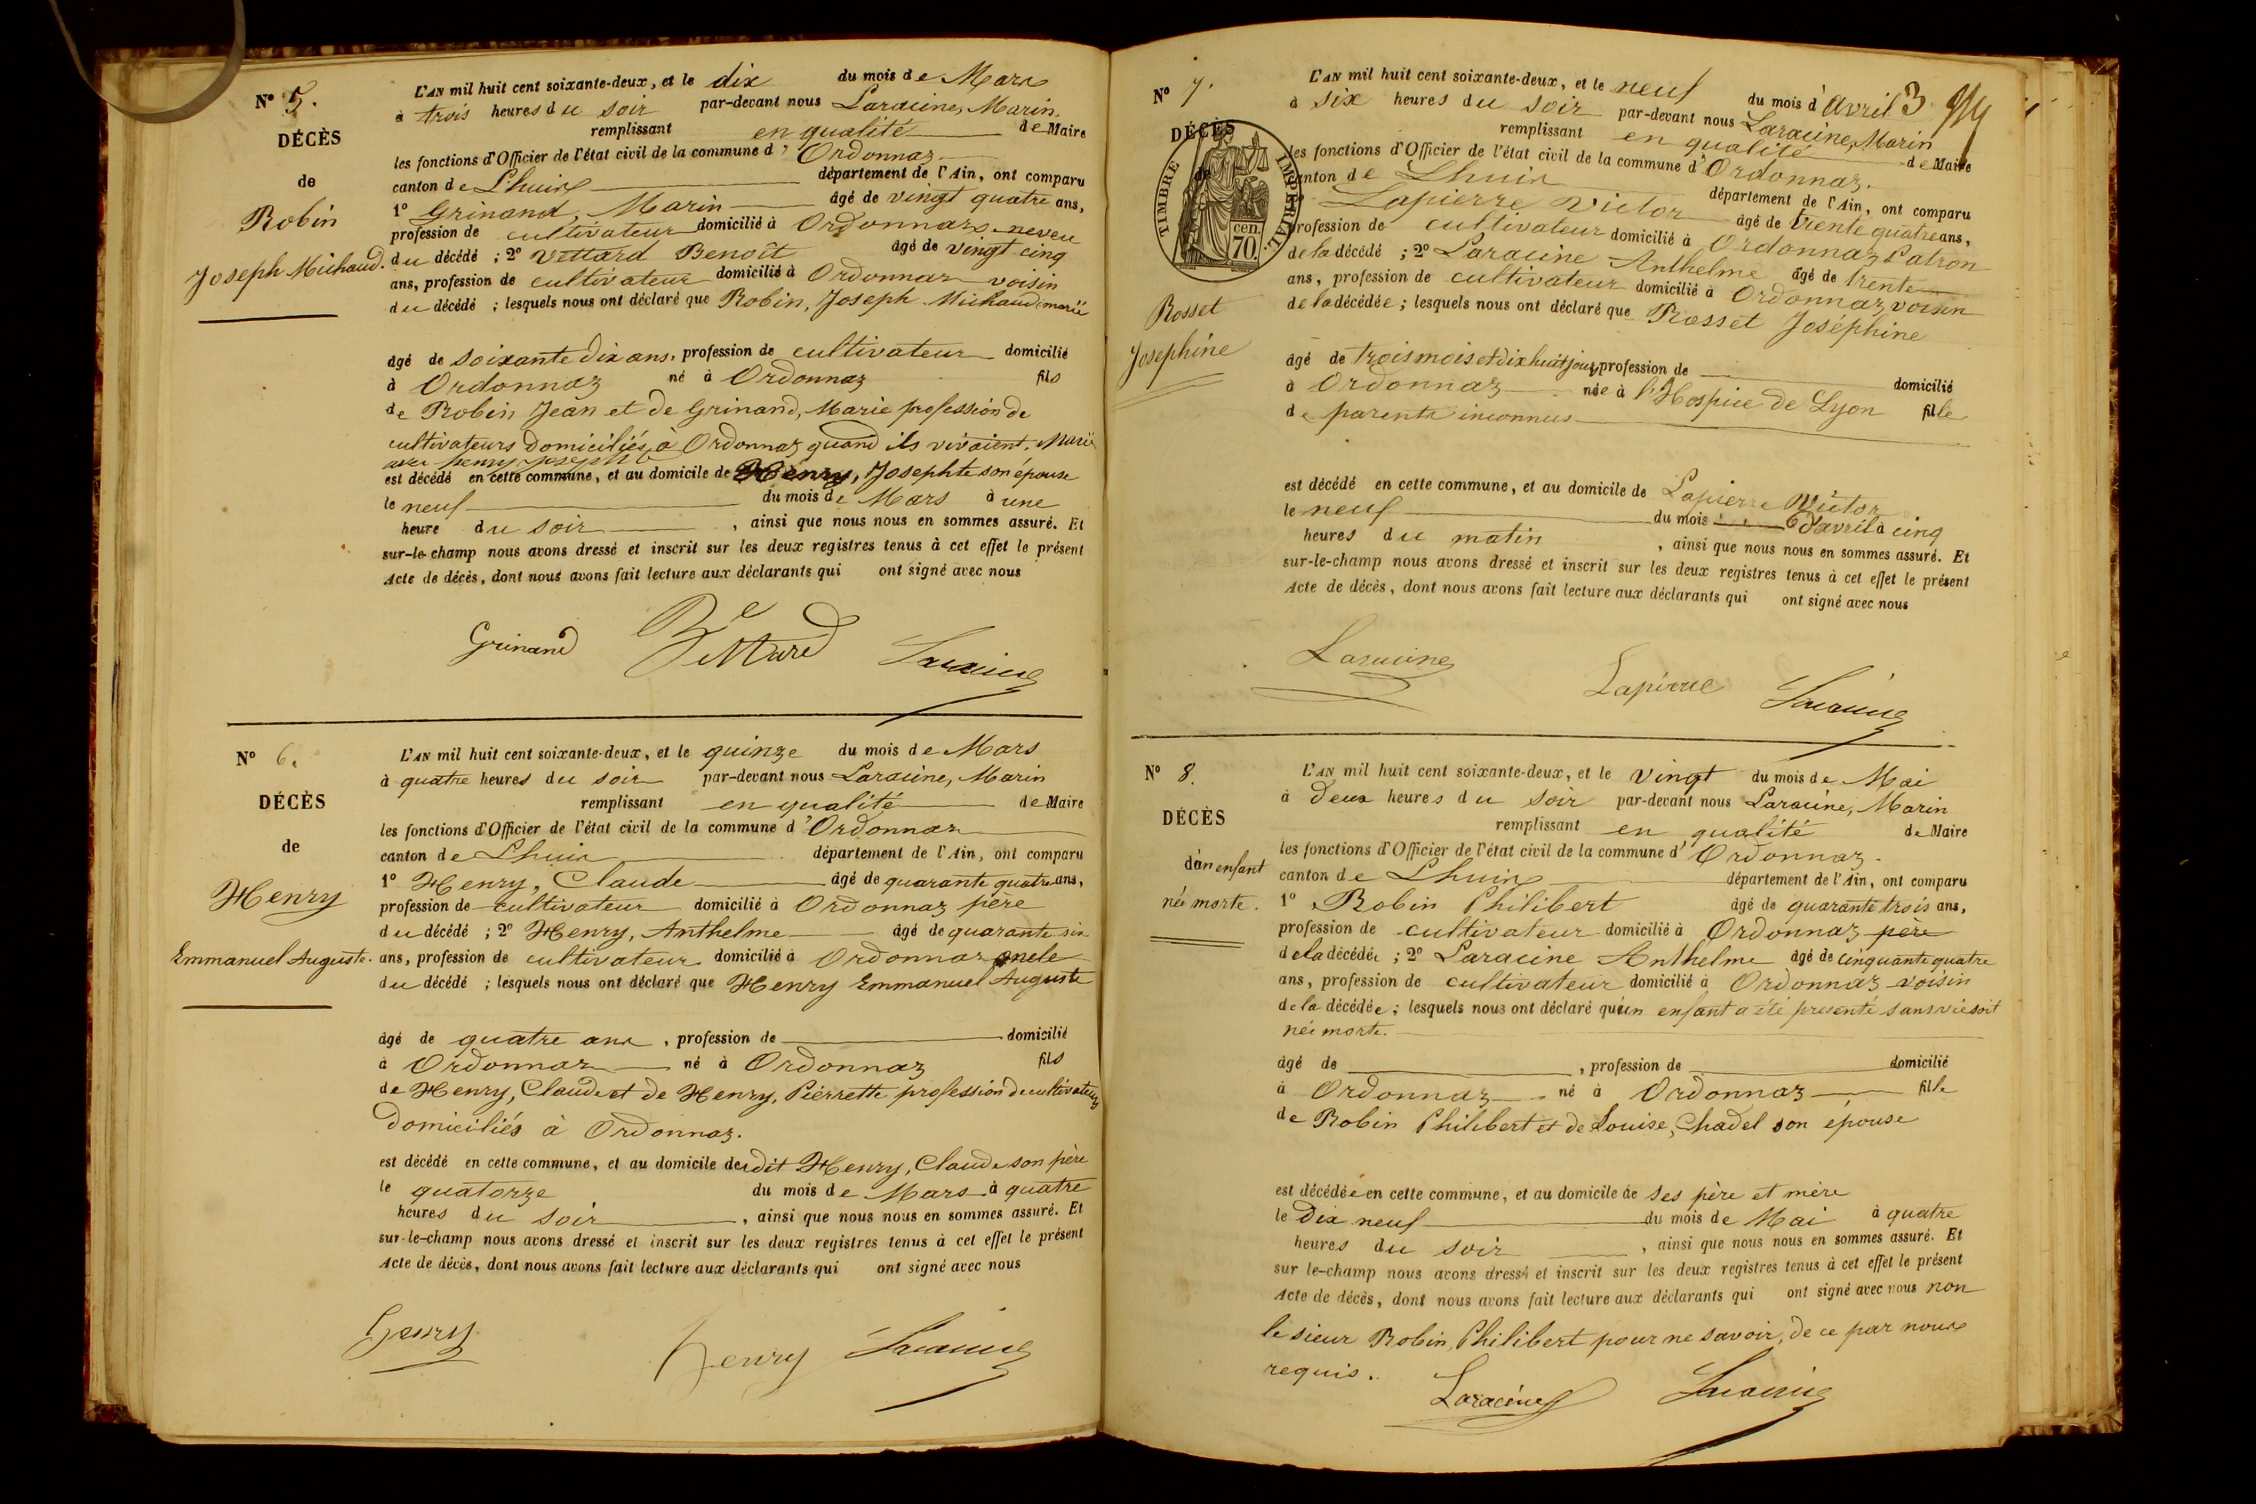 N° 5.
DÉCÈS
de
Robin
Joseph Michaud.
L'AN mil huit cent soixante-deux, et le dix du mois de Mars
à trois heures du soir par-devant nous Laracine, Marin
remplissant en qualité de Maire
les fonctions d'Officier de l'état civil de la commune d'Ordonnaz
canton de Lhuis département de l'Ain, ont comparu
1° Grinand, Marin âgé de vingt quatre ans,
profession de cultivateur domicilié à Ordonnaz neveu
du décédé ; 2° Vettard Benoît âgé de vingt cinq
ans, profession de cultivateur domicilié à Ordonnaz voisin
du décédé ; lesquels nous ont déclaré que Robin, Joseph Michaud marié
âgé de soixante dix ans, profession de cultivateur domicilié
à Ordonnaz né à Ordonnaz fils
de Robin Jean et de Grinand, Marie profession de
cultivateurs domiciliés à Ordonnaz quand ils vivaient. Marié
avec henry Josephte
est décédé en cette commune, et au domicile de Henry, Josephte son épouse
le neuf du mois de Mars à une
heure du soir , ainsi que nous nous en sommes assuré. Et
sur-le-champ nous avons dressé et inscrit sur les deux registres tenus à cet effet le présent
Acte de décès, dont nous avons fait lecture aux déclarants qui ont signé avec nous
Grinand Bt Vettard Laracine
N° 6.
DÉCÈS
de
Henry
Emmanuel Auguste.
L'AN mil huit cent soixante-deux, et le quinze du mois de Mars
à quatre heures du soir par-devant nous Laracine, Marin
remplissant en qualité de Maire
les fonctions d'Officier de l'état civil de la commune d'Ordonnaz
canton de Lhuis département de l'Ain, ont comparu
1° Henry, Claude âgé de quarante quatre ans,
profession de cultivateur domicilié à Ordonnaz père
du décédé ; 2° Henry, Anthelme âgé de quarante six
ans, profession de cultivateur domicilié à Ordonnaz oncle
du décédé ; lesquels nous ont déclaré que Henry Emmanuel Auguste
âgé de quatre ans , profession de domicilié
à Ordonnaz né à Ordonnaz fils
de Henry, Claude et de Henry, Pierrette profession de cultivateurs
domiciliés à Ordonnaz.
est décédé en cette commune, et au domicile dudit Henry, Claude son père
le quatorze du mois de Mars à quatre
heures du soir , ainsi que nous nous en sommes assuré. Et
sur-le-champ nous avons dressé et inscrit sur les deux registres tenus à cet effet le présent
Acte de décès, dont nous avons fait lecture aux déclarants qui ont signé avec nous
henry henry Laracine
3
N° 7.
DÉCÈS
de
TIMBRE IMPÉRIAL
70 cen.
Rosset
Josephine
L'AN mil huit cent soixante-deux, et le neuf du mois d'avril
à six heures du soir par-devant nous Laracine, Marin
remplissant en qualité de Maire
les fonctions d'Officier de l'état civil de la commune d'Ordonnaz.
canton de Lhuis département de l'Ain, ont comparu
Lapierre Victor âgé de trente quatre ans,
profession de cultivateur domicilié à Ordonnaz Patron
de la décédé ; 2° Laracine Anthelme âgé de trente
ans, profession de cultivateur domicilié à Ordonnaz, voisin
de la décédée ; lesquels nous ont déclaré que Rosset Joséphine
âgé de trois mois et dix huit jours, profession de domicilié
à Ordonnaz née à l'Hospice de Lyon fille
de parents inconnus
est décédé en cette commune, et au domicile de Lapierre Victor
le neuf du mois d'avril à cinq
heures du matin , ainsi que nous nous en sommes assuré. Et
sur-le-champ nous avons dressé et inscrit sur les deux registres tenus à cet effet le présent
Acte de décès, dont nous avons fait lecture aux déclarants qui ont signé avec nous
Laracine Lapierre Laracine
N° 8.
DÉCÈS
d'un enfant
née morte.
L'AN mil huit cent soixante-deux, et le vingt du mois de Mai
à deux heures du soir par-devant nous Laracine, Marin
remplissant en qualité de Maire
les fonctions d'Officier de l'état civil de la commune d'Ordonnaz.
canton de Lhuis département de l'Ain, ont comparu
1° Robin Philibert âgé de quarante trois ans,
profession de cultivateur domicilié à Ordonnaz père
de la décédée ; 2° Laracine Anthelme âgé de cinquante quatre
ans, profession de cultivateur domicilié à Ordonnaz voisin
de la décédée ; lesquels nous ont déclaré qu'un enfant a été presenté sans vie soit
née morte.
âgé de , profession de domicilié
à Ordonnaz né à Ordonnaz fille
de Robin Philibert et de Louise, Chadel son épouse
est décédée en cette commune, et au domicile de ses père et mère
le dix neuf du mois de Mai à quatre
heures du soir , ainsi que nous nous en sommes assuré. Et
sur le-champ nous avons dressé et inscrit sur les deux registres tenus à cet effet le présent
Acte de décès, dont nous avons fait lecture aux déclarants qui ont signé avec nous non
le sieur Robin, Philibert pour ne savoir, de ce par nous
requis.
Laracine Laracine